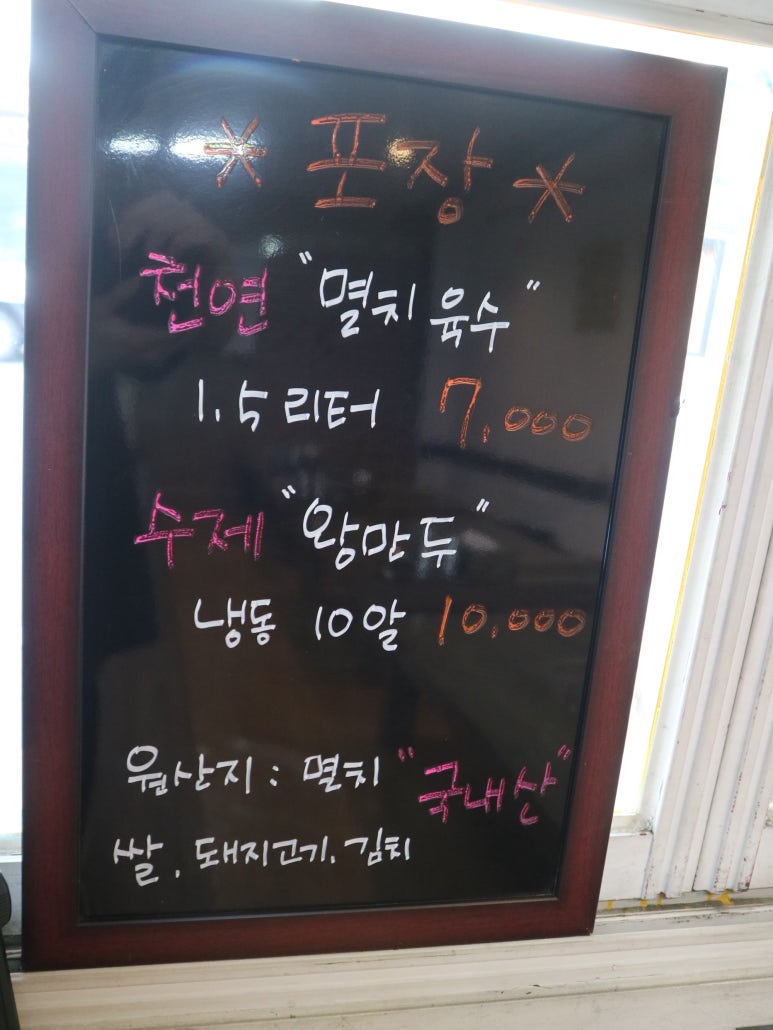 * 포장 *
천연 "멸치 육수"
1.5 리터 7,000
수제 "왕만두"
냉동 10알 10,000
원산지 : 멸치 "국내산"
쌀, 돼지고기, 김치